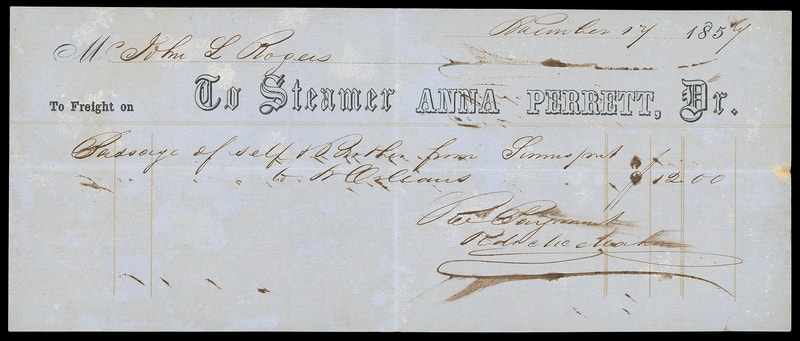 17 1857
Mr John L Rogers
To Freight on To Steamer ANNA PERRETT, Dr.
Passage of self & Brother from Simmsport
to N Orleans $12.00
Rec Payment